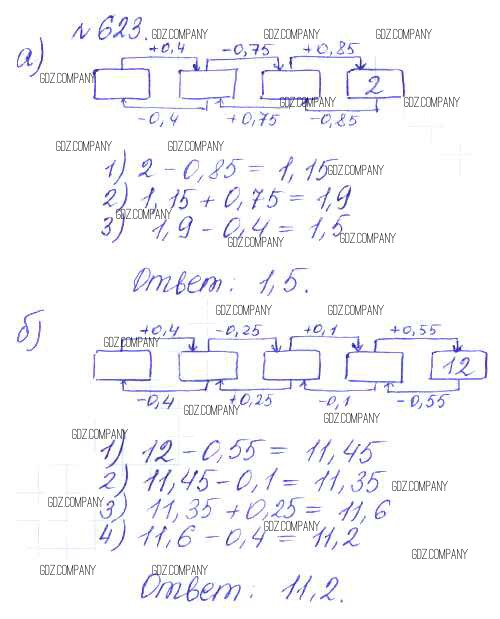 № 623. GDZ.COMPANY GDZ.COMPANY
а) +0,4 -0,75 +0,85
GDZ.COMPANY 2
GDZ.COMPANY GDZ.COMPANY
-0,4 +0,75 -0,85
GDZ.COMPANY GDZ.COMPANY
1) 2 - 0,85 = 1,15 GDZ.COMPANY
2) 1,15 + 0,75 = 1,9
GDZ.COMPANY
3) 1,9 - 0,4 = 1,5
GDZ.COMPANY GDZ.COMPANY
Ответ: 1,5.
GDZ.COMPANY GDZ.COMPANY
б) +0,4 -0,25 +0,1 +0,55
GDZ.COMPANY
12
-0,4 +0,25 -0,1 -0,55
GDZ.COMPANY GDZ.COMPANY
GDZ.COMPANY
1) 12 - 0,55 = 11,45
2) 11,45 - 0,1 = 11,35 GDZ.COMPANY
GDZ.COMPANY
3) 11,35 + 0,25 = 11,6
GDZ.COMPANY
4) 11,6 - 0,4 = 11,2
GDZ.COMPANY
GDZ.COMPANY GDZ.COMPANY
Ответ: 11,2.